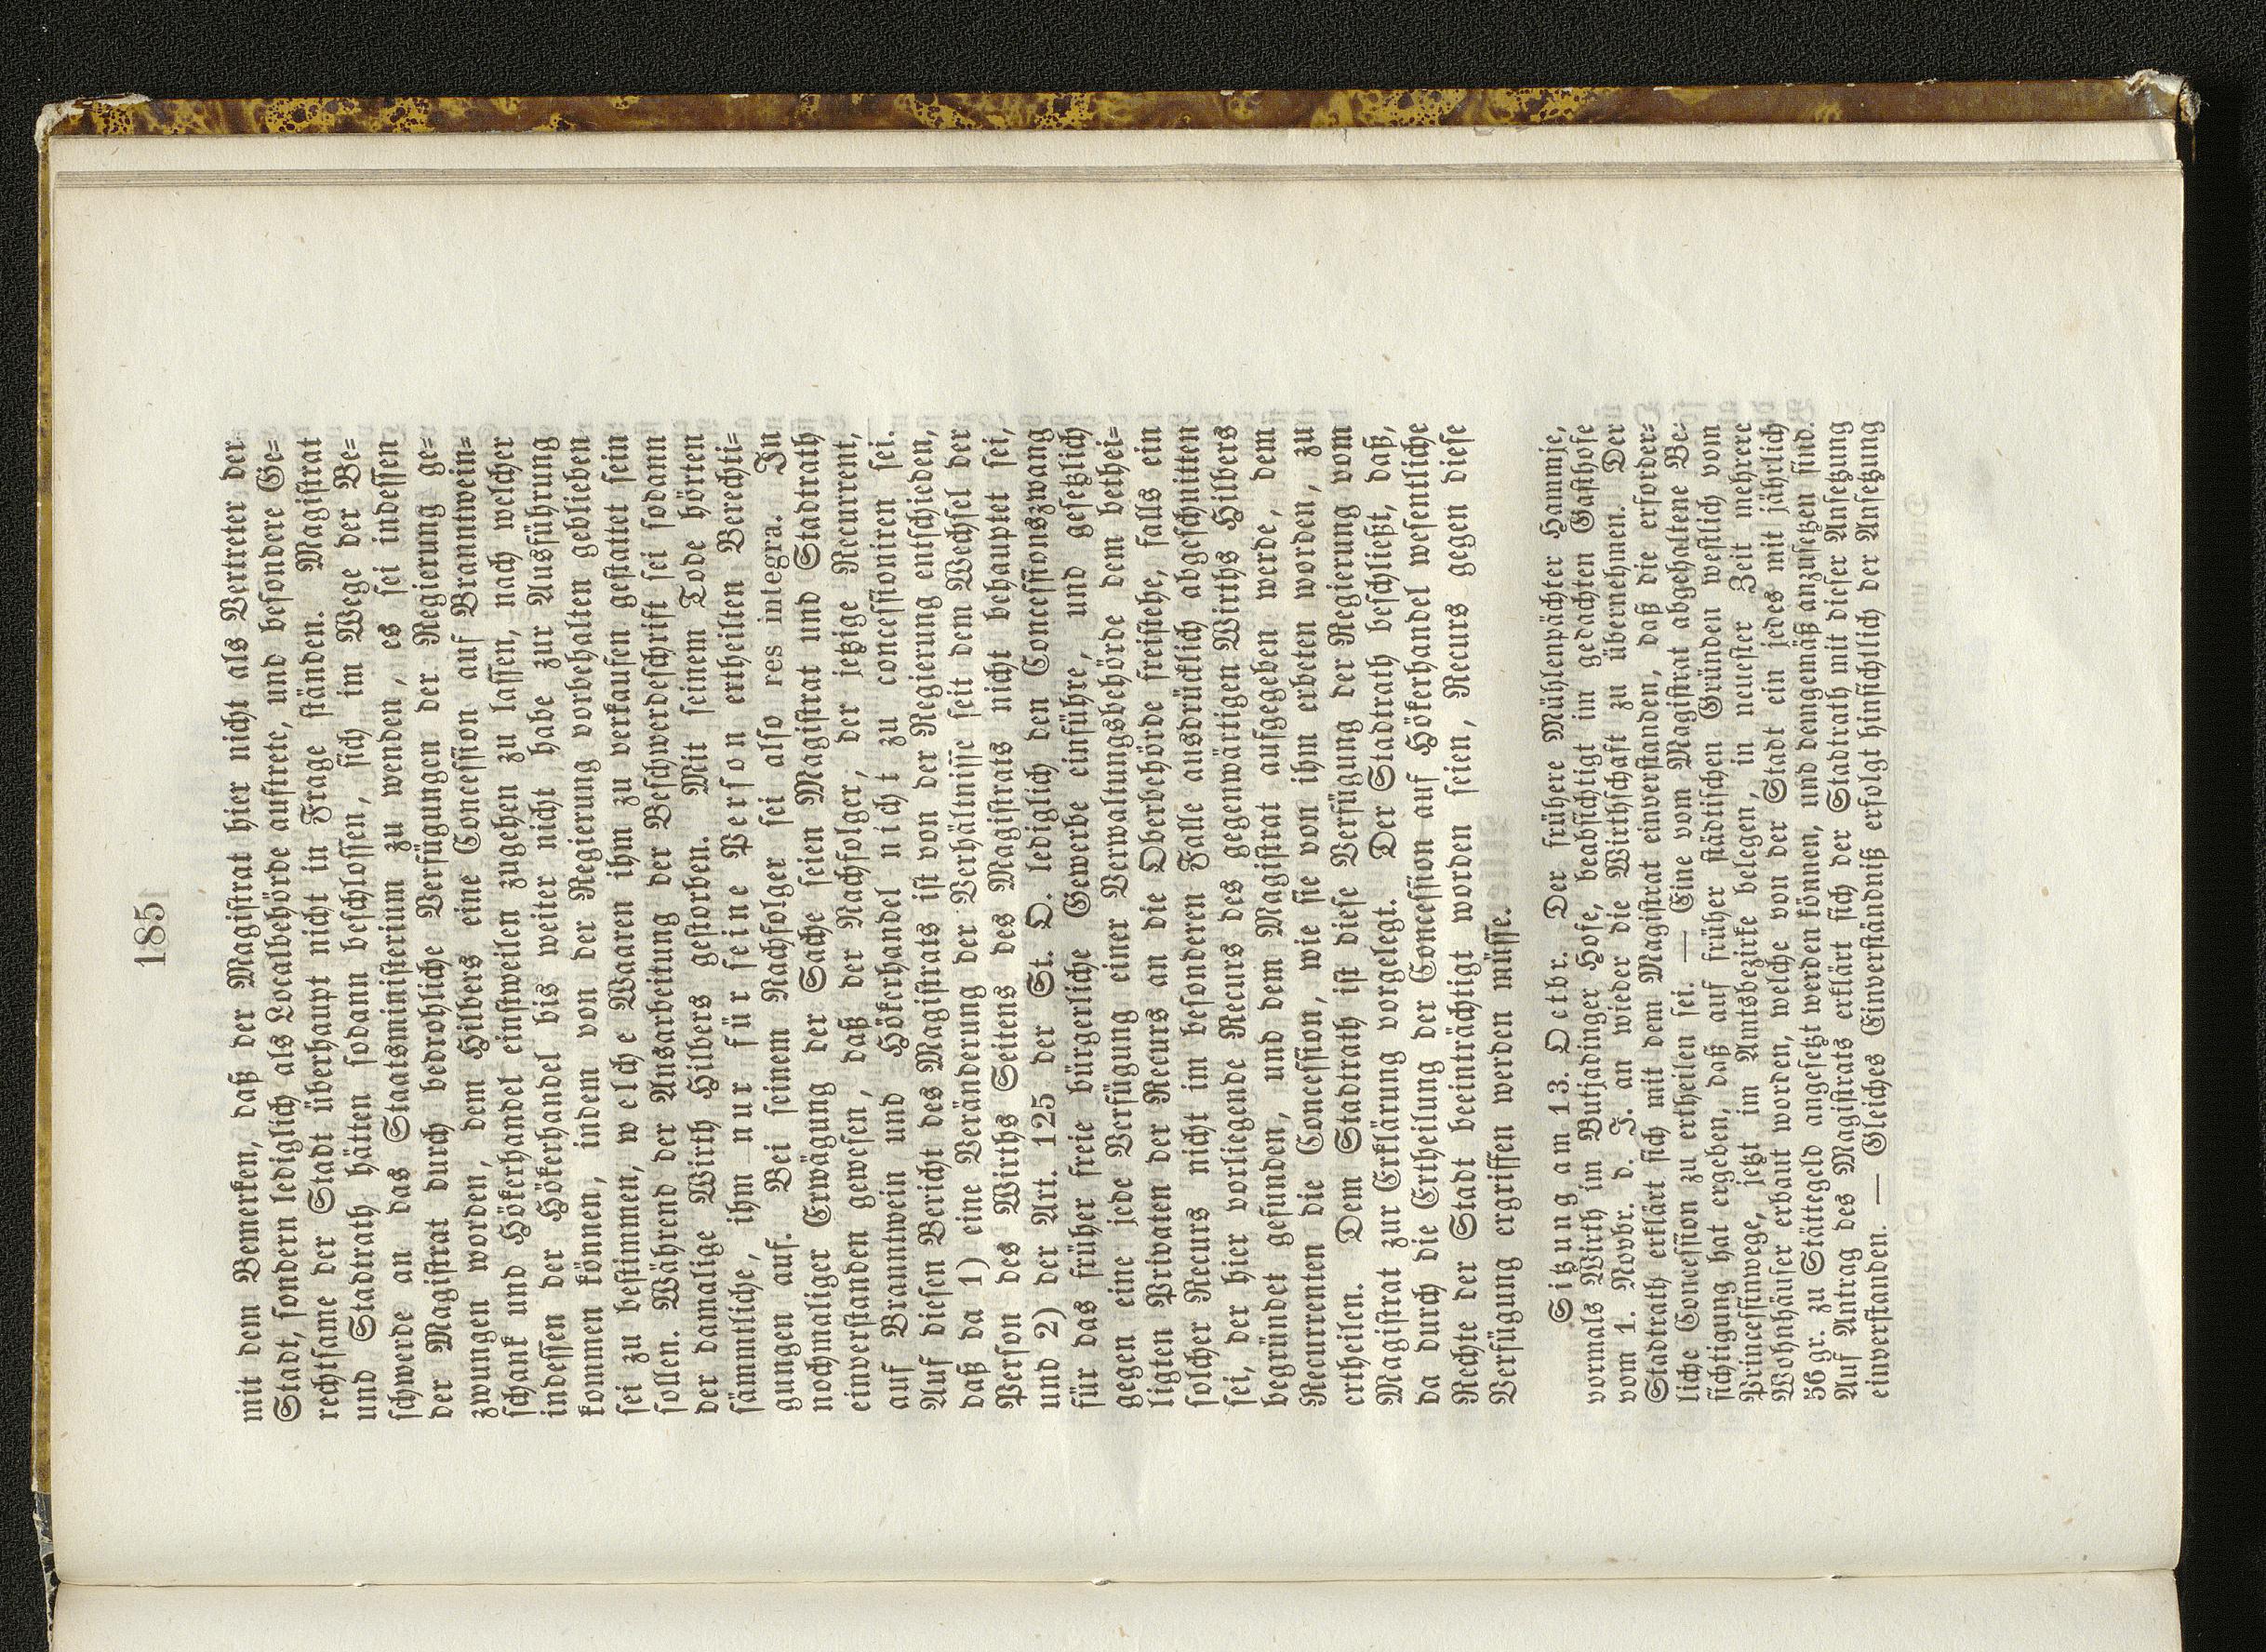 185
mit dem Bemerken, daß der Magistrat hier nicht als Vertreter der
Stadt, sondern lediglich als Localbehörde auftrete, und besondere Ge-
rechtsame der Stadt überhaupt nicht in Frage ständen. Magistrat
und Stadtrath hätten sodann beschlossen, sich im Wege der Be-
schwerde an das Staatsministerium zu wenden, es sei indessen
der Magistrat durch bedrohliche Verfügungen der Regierung ge-
zwungen worden, dem Hilbers eine Concession auf Branntwein-
schank und Hökerhandel einstweilen zugehen zu lassen, nach welcher
indessen der Hökerhandel bis weiter nicht habe zur Ausführung
kommen können, indem von der Regierung vorbehalten geblieben
sei zu bestimmen, welche Waaren ihm zu verkaufen gestattet sein
sollen. Während der Ausarbeitung der Beschwerdeschrift sei sodann
der damalige Wirth Hilbers gestorben. Mit seinem Tode hörten
sämmtliche, ihm nur für seine Person ertheilten Berechti-
gungen auf. Bei seinem Nachfolger sei also res integra. In
nochmaliger Erwägung der Sache seien Magistrat und Stadtrath
einverstanden gewesen, daß der Nachfolger, der jetzige Recurrent,
auf Branntwein und Hökerhandel nicht zu concessioniren sei.
Auf diesen Bericht des Magistrats ist von der Regierung entschieden,
daß da 1) eine Veränderung der Verhältnisse seit dem Wechsel der
Person des Wirths Seitens des Magistrats nicht behauptet sei,
und 2) der Art. 125 der St. O. lediglich den Concessionszwang
für das früher freie bürgerliche Gewerbe einführe, und gesetzlich
gegen eine jede Verfügung einer Verwaltungsbehörde dem bethei-
ligten Privaten der Recurs an die Oberbehörde freistehe, falls ein
solcher Recurs nicht im besonderen Falle ausdrücklich abgeschnitten
sei, der hier vorliegende Recurs des gegenwärtigen Wirths Hilbers
begründet gefunden, und dem Magistrat aufgegeben werde, dem
Recurrenten die Concession, wie sie von ihm erbeten worden, zu
ertheilen. Dem Stadtrath ist diese Verfügung der Regierung vom
Magistrat zur Erklärung vorgelegt. Der Stadtrath beschließt, daß,
da durch die Ertheilung der Concession auf Hökerhandel wesentliche
Rechte der Stadt beeinträchtigt worden seien, Recurs gegen diese
Verfügung ergriffen werden müsse.
Sitzung am 13. Octbr. Der frühere Mühlenpächter Hammje,
vormals Wirth im Butjadinger Hofe, beabsichtigt im gedachten Gasthofe
vom 1. Novbr. d. J. an wieder die Wirthschaft zu übernehmen. Der
Stadtrath erklärt sich mit dem Magistrat einverstanden, daß die erforder-
liche Concession zu ertheilen sei. — Eine vom Magistrat abgehaltene Be-
sichtigung hat ergeben, daß auf früher städtischen Gründen westlich vom
Princessinwege, jetzt im Amtsbezirke belegen, in neuester Zeit mehrere
Wohnhäuser erbaut worden, welche von der Stadt ein jedes mit jährlich
56 gr. zu Stättegeld angesetzt werden können, und demgemäß anzusetzen sind.
Auf Antrag des Magistrats erklärt sich der Stadtrath mit dieser Ansetzung
einverstanden. — Gleiches Einverständniß erfolgt hinsichtlich der Ansetzung